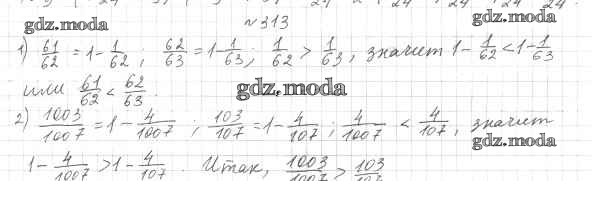 gdz.moda
gdz.moda
№313
1) 61/62 = 1 - 1/62; 62/63 = 1 - 1/63; 1/62 > 1/63, значит 1 - 1/62 < 1 - 1/63
или 61/62 < 62/63.
gdz.moda
2) 1003/1007 = 1 - 4/1007; 103/107 = 1 - 4/107; 4/1007 < 4/107, значит
gdz.moda
1 - 4/1007 > 1 - 4/107. Итак, 1003/1007 > 103/107